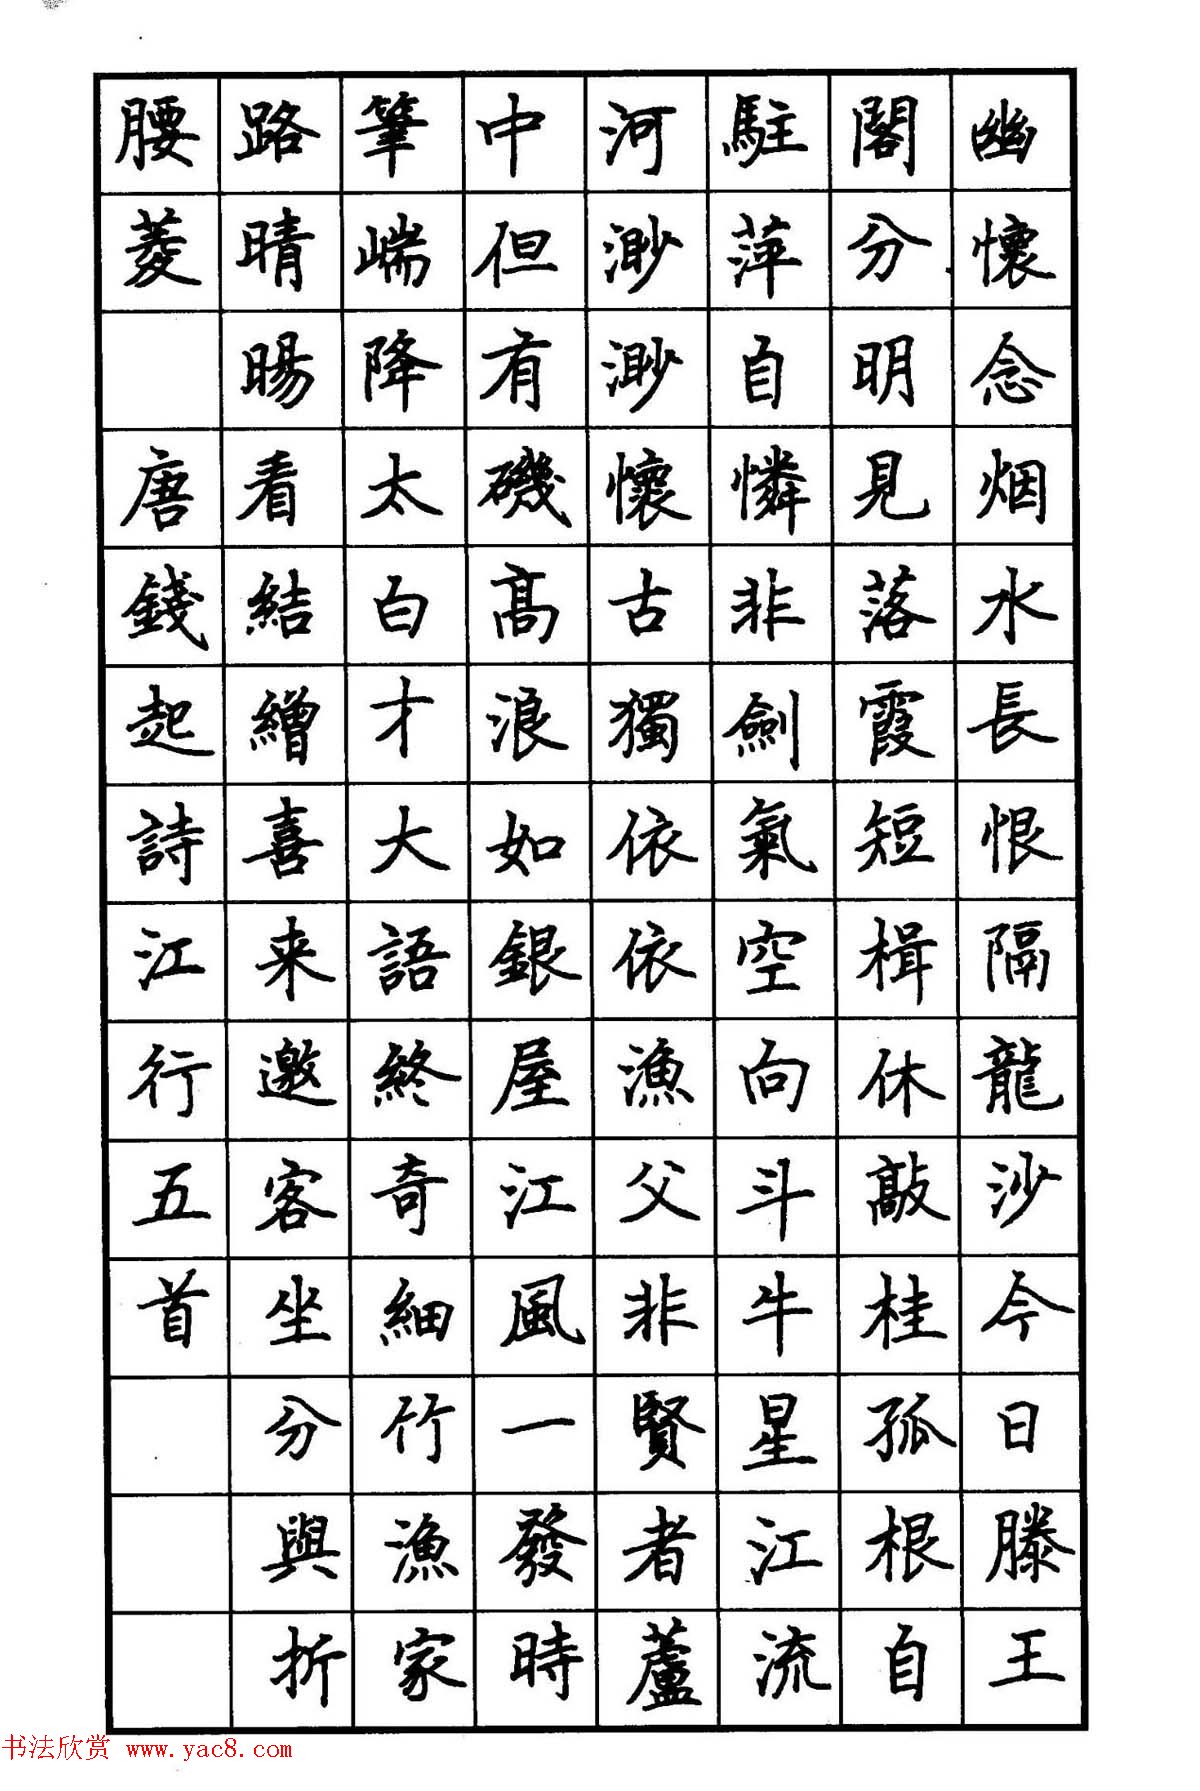 幽懷念烟水長恨隔龍沙今日滕王
閣分明見落霞短楫休敲桂孤根自
駐萍自憐非劍氣空向斗牛星江流
河渺渺懷古獨依依漁父非賢者蘆
中但有磯高浪如銀屋江風一發時
筆端降太白才大語終奇細竹漁家
路晴暘看結繒喜来邀客坐分與折
腰菱 唐錢起詩江行五首
书法欣赏 www.yac8.com